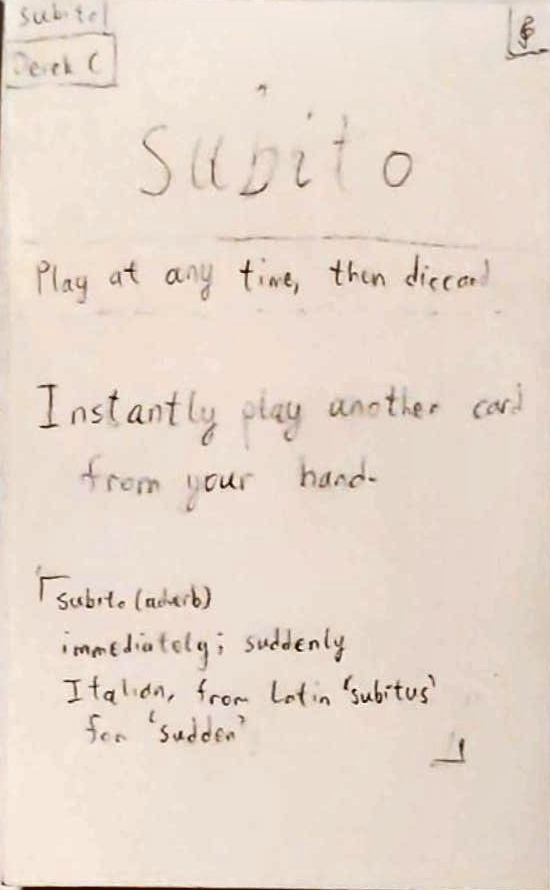 Subito
Derek C
Subito
Play at any time, then discard
Instantly play another card
from your hand.
Subito (adverb)
immediately; suddenly
Italian, from Latin 'subitus'
for 'sudden'